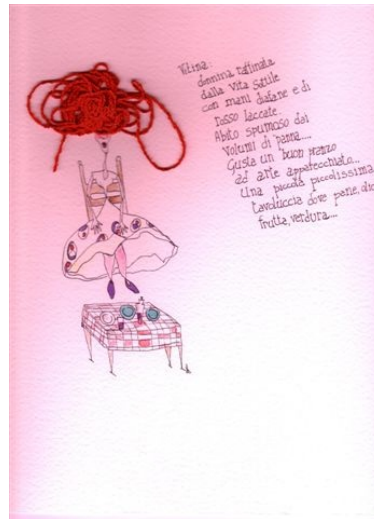 donnina raffinata
dalla vita sottile
con mani diafane e di
rosso laccate.
Abito spumoso dai
volumi di panna....
Gusta un buon pranzo
ad arte apparecchiato...
Una piccola piccolissima
tavoluccia dove pane, olio
frutta, verdura....